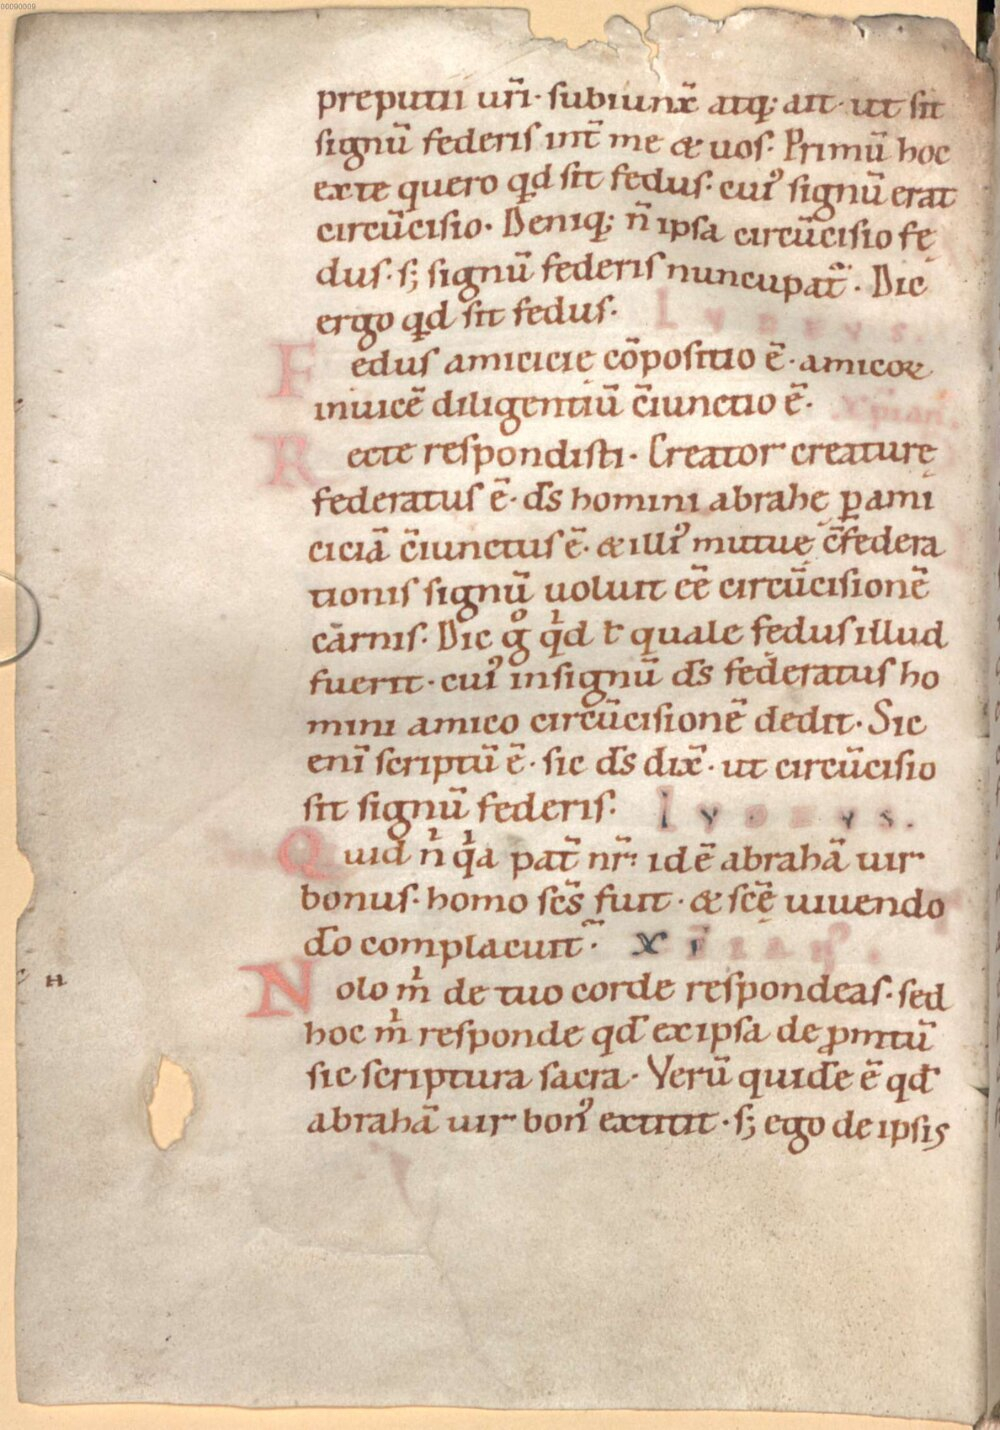 00090009
preputii ur̃i · subiunx̃ atq; ait · ut sit
signũ federis int̃ me & uos · Primũ hoc
ex te quero qd sit fedus · cui᾽ signũ erat
circũcisio · Deniq; ñ ipsa circũcisio fę
dus · s; signũ federis nuncupat̃ · Dic
ergo qd sit fedus · IVDEVS .
Fedus amicicię cõpositio ẽ · amicoꝝ
inuicẽ diligentiũ c̃iunctio ẽ · xp̃ian .
Recte respondisti · Creator creaturę
federatus ẽ · ds̃ homini abrahę ꝑ ami
ciciã c̃iunctus ẽ · & illi᾽ mutuę c̃federa
tionis signũ uoluit eẽ circũcisionẽ
carnis · Dic gͦ qͥd ł quale fedus illud
fuerit · cui᾽ in signũ ds̃ federatus ho
mini amico circũcisionẽ dedit · Sic
eni᷉ scriptũ ẽ · sic ds̃ dix̃ · ut circũcisio
sit signũ federis · IVDEVS .
Quid nͥ qͥa pat̃ nr̃ idẽ abrahã uir
bonus · homo scs̃ fuit · & scẽ uiuendo
dõ complacuit · XPĨAN .
Nolo mͥ de tuo corde respondeas · sed
hoc mͥ responde qd̃ ex ipsa de ꝓmtũ
sic scriptura sacra · Verũ quidẽ ẽ qd̃
abrahã uir bon᾽ extitit · s; ego de ipsis